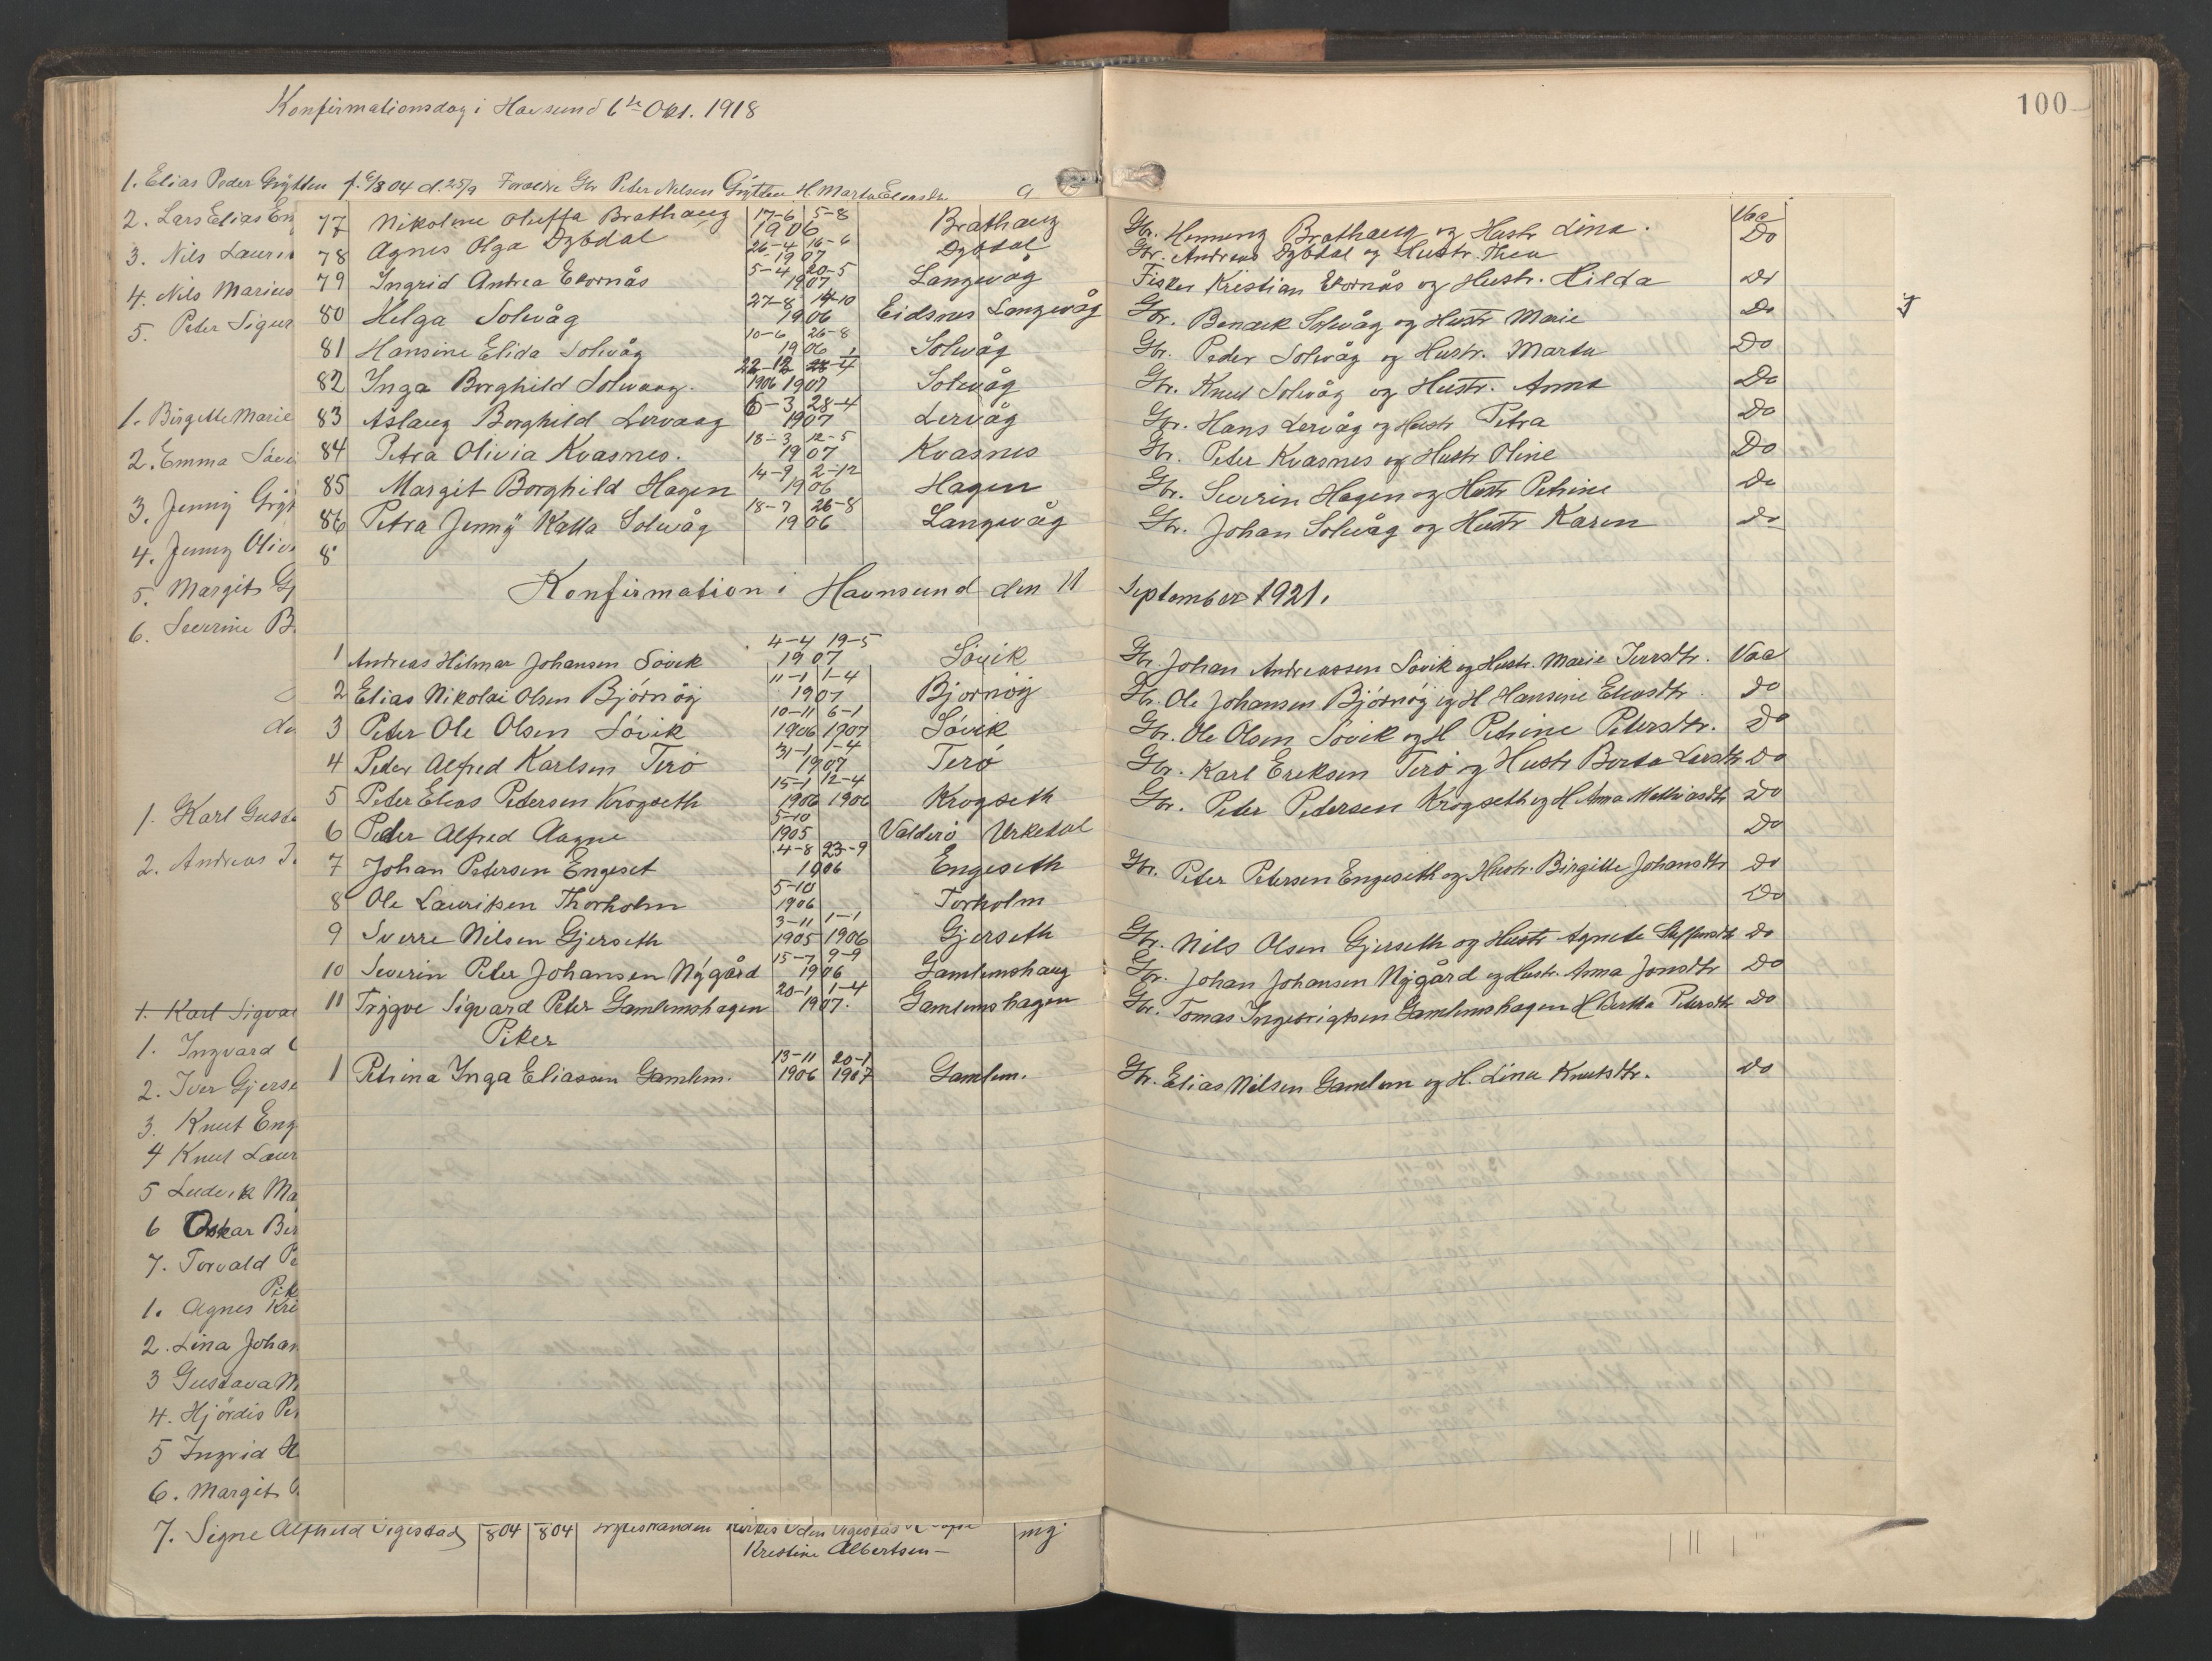 100
Konfirmationsdag i Havsund 6te Okt. 1918
1. Elias Peder Grytten f. 6/8 04 d. 25/9 Forældre Gbr Peter Nelsen Grytten H. Marta Eliasdtr
2. Lars Elias En
3. Nils Laurin
4. Nils Marius
5. Peter Sigur
1. Birgitte Marie
2. Emma Søvi
3. Jenny Gryt
4. Jenny Olive
5. Margit Gj
6. Severine B
1. Karl Gusta
2. Andreas
1. Karl Sigval
1. Ingvard
2. Iver Gjerse
3. Knut Eng
4 Knut Laur
5 Ludvik Ma
6 Oskar Ber
7. Torvald Pe
Pik
1. Agnes Kri
2. Lina Johan
3 Gustava M
4. Hjørdis Pe
5 Ingrid H
6. Margit
7. Signe Alfhild Vigestad 804 804
Kristine Albertsen mg
77 Nikoline Oluffa Brathaug 17-6 5-8 1906 Brathaug Gbr. Henning Brathaug og Hustr Lina. Vac
78 Agnes Olga Dybdal 26-4 16-6 1907 Dybdal Gbr. Andreas Dybdal og Hustr. Thea Do
79 Ingrid Andrea Ekornås 5-4 20-5 1907 Langevåg Fisker Kristian Ekornås og Hustr. Hilda Do
80 Helga Solevåg 27-8 14-10 1906 Eidsnes Langevåg Gbr. Bendik Solevåg og Hustr Marie Do
81 Hansine Elida Solevåg 10-6 26-8 1906 Solevåg Gbr. Peder Solevåg og Hustr. Marta Do
82 Inga Borghild Solevaag. 1906 1907 Solevåg Gbr. Knud Solevåg og Hustr. Anna Do
83 Aslaug Borghild Lervaag 6-3 28-4 1907 Lervåg Gbr. Hans Lervåg og Hustr Petra Do
84 Petra Olivia Kvasnes. 18-3 12-5 1907 Kvasnes Gbr. Peter Kvasnes og Hustr Oline Do
85 Margit Borghild Hagen 14-9 2-12 1906 Hagen Gbr. Severin Hagen og Hustr Petrine Do
86 Petra Jenny Kalla Solevåg 18-7 26-8 1906 Langevåg Gbr. Johan Solevåg og Hustr Karen Do
8
Konfirmation i Havnsund den 11 September 1921.
1 Andreas Hilmar Johansen Søvik 4-4 19-5 1907 Søvik Gbr. Johan Andreassen Søvik og Hustr. Marie Iversdtr. Vac
2 Elias Nikolai Olsen Bjørnøy 11-1 1-4 1907 Bjørnøy Gbr. Ole Johansen Bjørnøy og H Hansine Eliasdtr. Do
3 Peter Ole Olsen Søvik 10-11 6-1 1906 1907 Søvik Gbr. Ole Olsen Søvik og H Petrine Petersdtr. Do
4 Peder Alfred Karlsen Terø 31-1 1-4 1907 Terø Gbr. Karl Eriksen Terø og Hustr Berta Larsdtr Do
5 Peter Elias Pedersen Krogseth 15-1 12-4 1906 1906 Krogseth Gbr. Peter Pedersen Krogseth og H Anna Mathiasdtr Do
6 Peder Alfred Aagne 5-10 1905 Valderø Urkedal Do
7 Johan Petersen Engeset 4-8 23-9 1906 Engeseth Gbr. Peter Petersen Engeseth og Hustr. Birgitte Johansdtr Do
8 Ole Lauritsen Thorholm 5-10 1906 Torholm Do
9 Sverre Nilsen Gjerseth 3-11 1-1 1905 1906 Gjerseth Gbr. Nils Olsen Gjerseth og Hustr Agnete Steffensdtr Do
10 Severin Peter Johansen Nygård 15-7 9-9 1906 Gamlemshaug Gbr. Johan Johansen Nygård og Hustr. Anna Jonsdtr Do
11 Trygve Sigvard Peter Gamlemshagen 20-1 1-4 1907. Gamlemshagen Gbr. Tomas Ingebrigtsen Gamlemshagen H Berthe Petersdtr Do
Piker
1 Petrina Inga Eliassen Gamlem. 13-11 20-1 1906 1907 Gamlem. Gbr. Elias Nilsen Gamlem og H. Lina Knutsdtr. Do